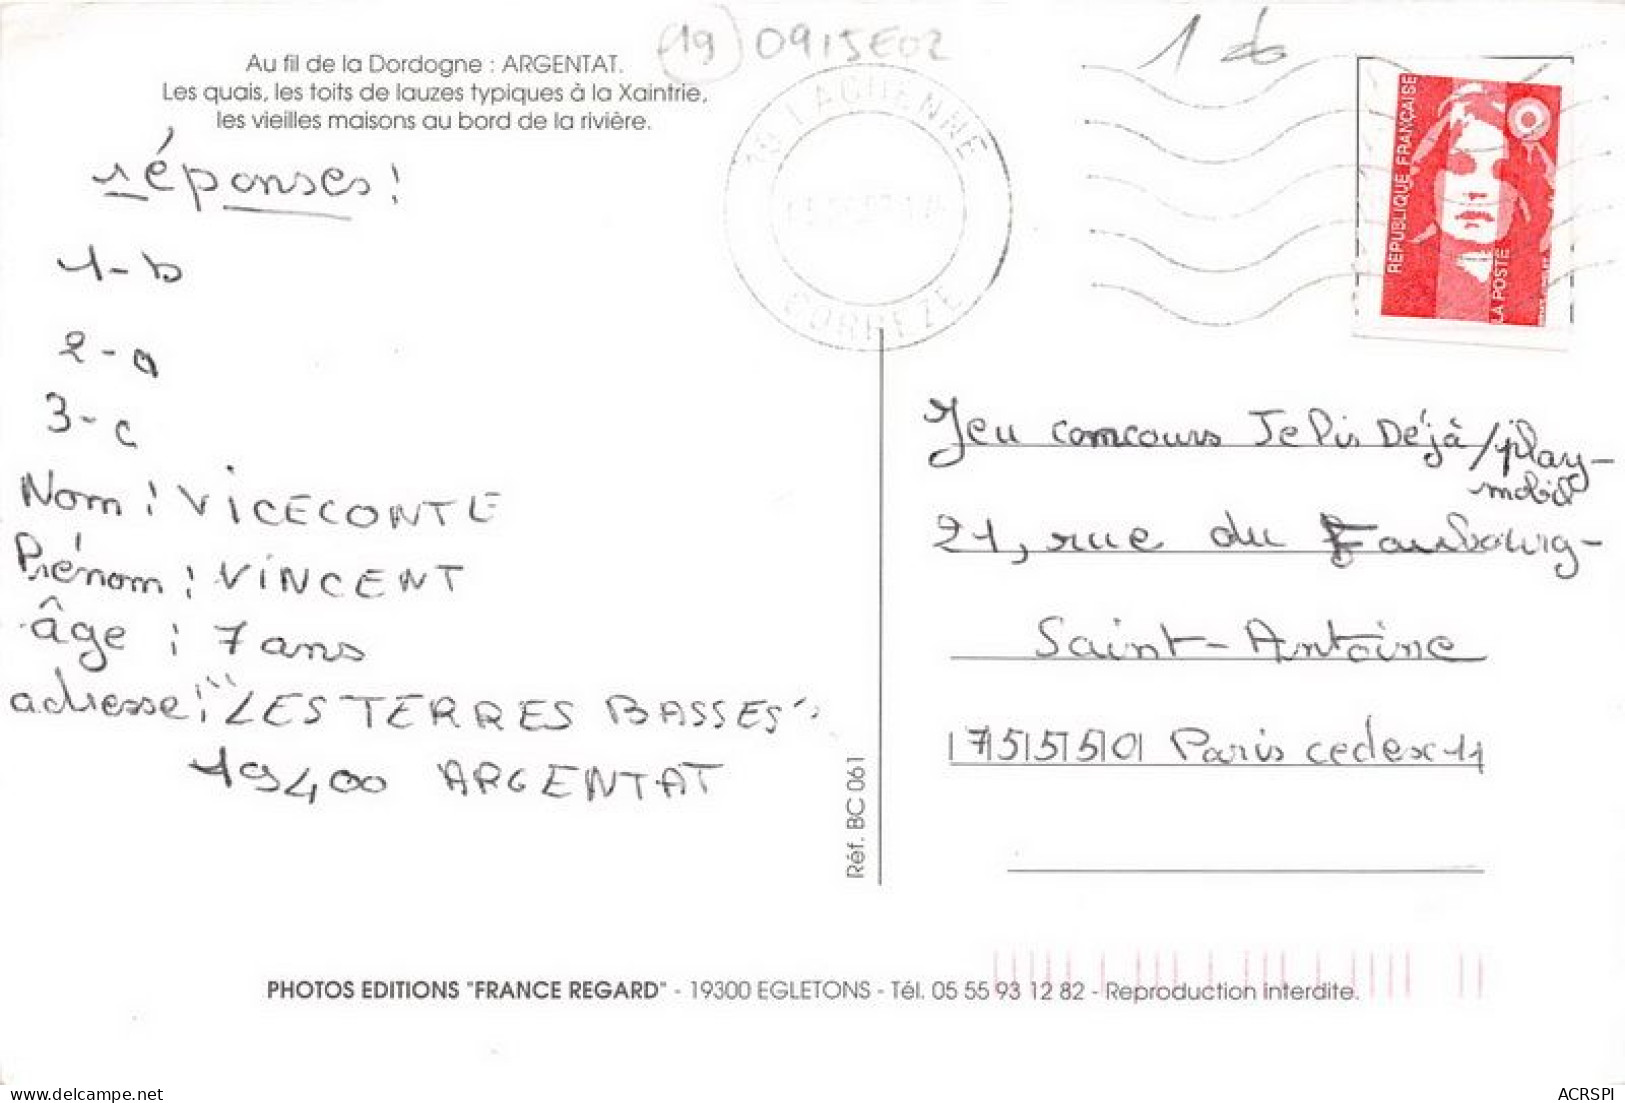 19 0915E02
Au fil de la Dordogne : ARGENTAT.
Les quais, les toits de lauzes typiques à la Xaintrie,
les vieilles maisons au bord de la rivière.
19 LAGUENNE
CORREZE
REPUBLIQUE FRANÇAISE
LA POSTE
réponses :
1-b
2-a
3-c
Nom : VICECONTE
Prénom : VINCENT
âge : 7 ans
adresse : "LES TERRES BASSES"
19400 ARGENTAT
Jeu concours Je Lis Déjà/play-
mobil
21, rue du Faubourg-
Saint-Antoine
75550 Paris cedex 11
Réf. BC 061
PHOTOS EDITIONS "FRANCE REGARD" - 19300 EGLETONS - Tél. 05 55 93 12 82 - Reproduction interdite.
ACRSPI